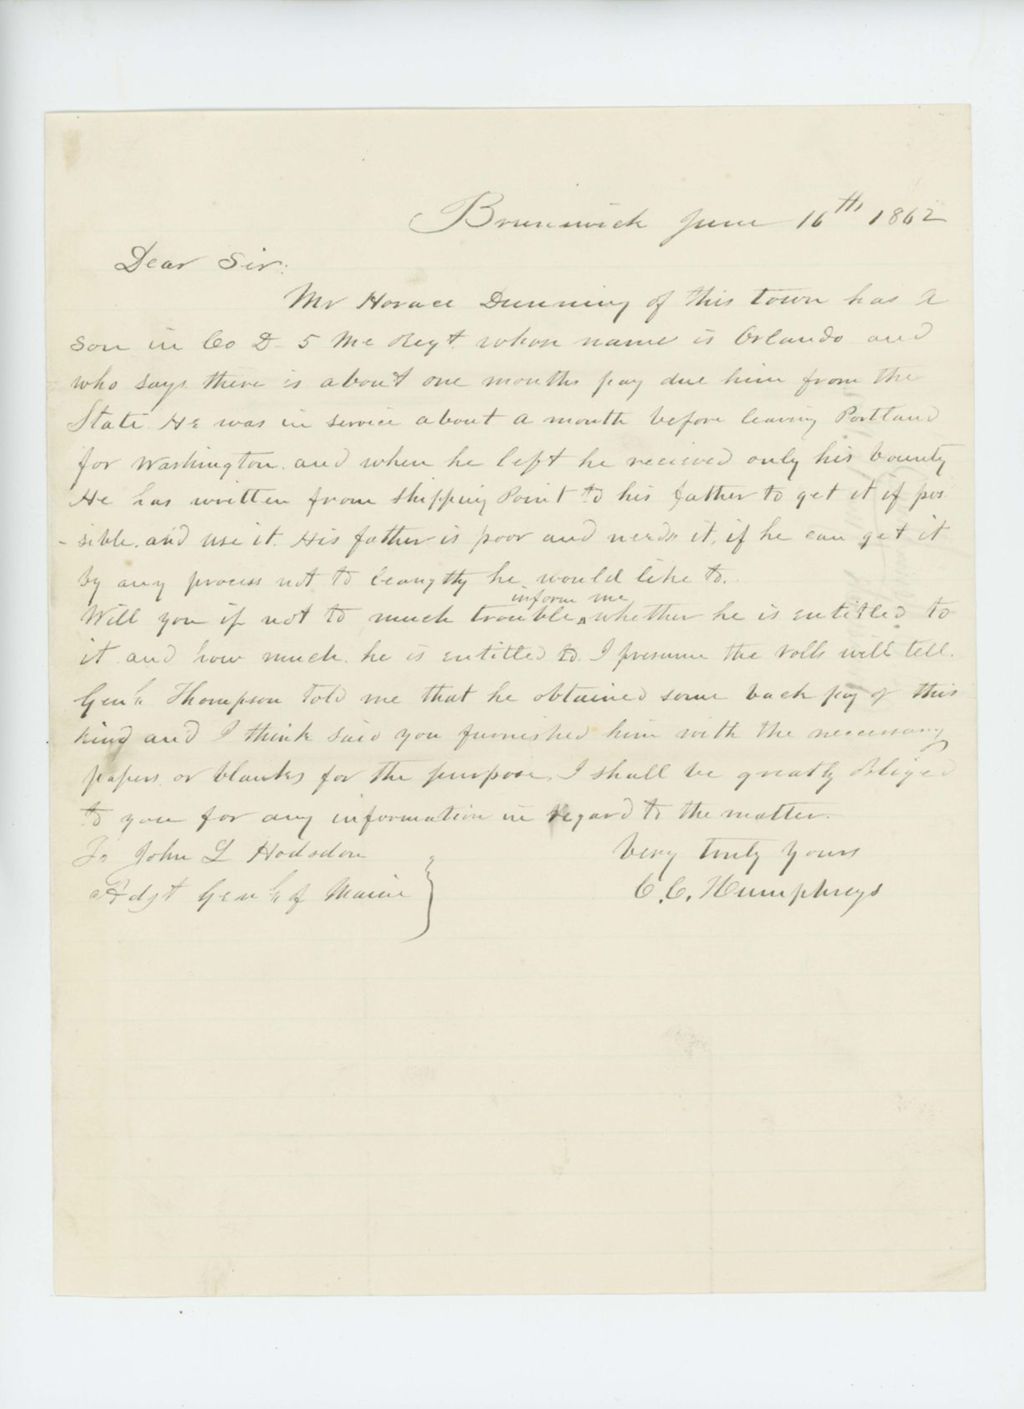 Brunswick June 16th 1862
Dear Sir:
Mr Horace Dunning of this town has a
Son in Co D- 5 Me Regt. whose name is Orlando and
who says there is about one months pay due him from the
State. He was in service about a month before leaving Portland
for Washington. and when he left he recieved only his bounty
He has written from Shipping Point to his father to get it if pos
- sible. and use it. His father is poor and needs it, if he can get it
by any process not to leangthy he would like to.
inform me
Will you if not to much trouble ^ whether he is entitled to
it and how much. he is entitled to. I presume the rolls will tell.
Genl. Thompson told me that he obtained some back pay of this
kind and I think said you furnished him with the neccessary
papers or blanks for the purpose. I shall be greatly obliged
to you for any information in regard to the matter.
To John L Hodsdon
Very truly yours
Adjt Genl. of Maine
C. C. Humphreys